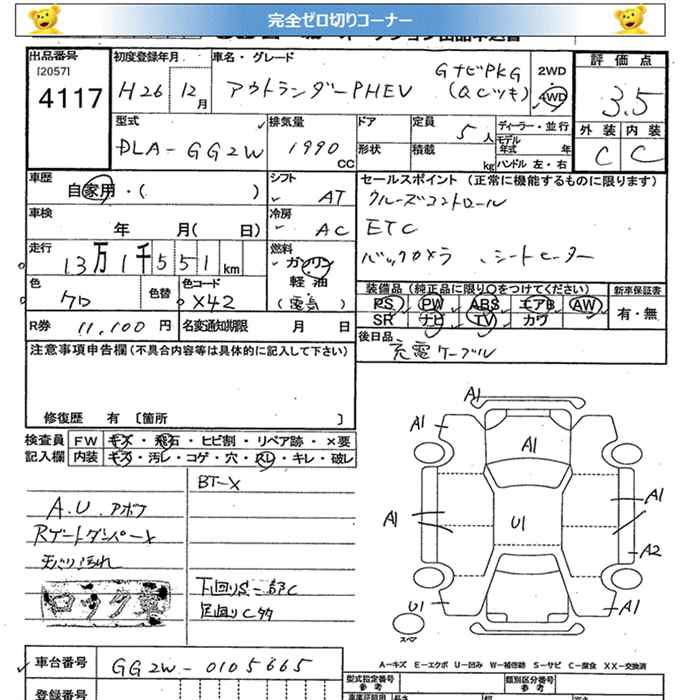 完全ゼロ切りコーナー
出品番号 初度登録年月 車名・グレード 評価点
[2057]
4117
H26 12月 アウトランダーPHEV GナビPKG (QCツキ) 2WD 4WD 3.5
型式 排気量 ドア 定員 5人 ディーラー・並行 外装 内装
DLA-GG2W 1990 CC 形状 積載 kg モデル年式 年 ハンドル 左・右 C C
車歴 シフト セールスポイント (正常に機能するものに限ります)
自家用・( ) AT クルーズコントロール
車検 冷房 ETC
年 月( 日) AC バックカメラ 、シートヒーター
走行 燃料
13万1千551km ガソリン
色 色替 色コード 軽油 装備品 (純正品に限り○をつけてください) 新車保証書
クロ X42 (電気) PS PW ABS エアB AW 有・無
SR ナビ TV カワ
R券 11,100円 名変通知期限 月 日 後日品
充電ケーブル
注意事項申告欄(不具合内容等は具体的に記入して下さい)
修復歴 有 〔箇所 〕
検査員 FW キズ・飛石・ヒビ割・リペア跡・×要
記入欄 内装 キズ・汚レ・コゲ・穴・スレ・キレ・破レ
BT-X
A.U.アポケ
Rゲートダンパー×
天バリ汚れ
下回りS一部C
足回りC多
A1
A1 A1 A1
A1 U1 A1
A2
U1 A1
スペア
A-キズ E-エクボ U-凹み W-補修跡 S-サビ C-腐食 XX-交換済
車台番号 GG2W-0105665
型式指定番号 類別区分番号
参考 参考
登録番号
長さ